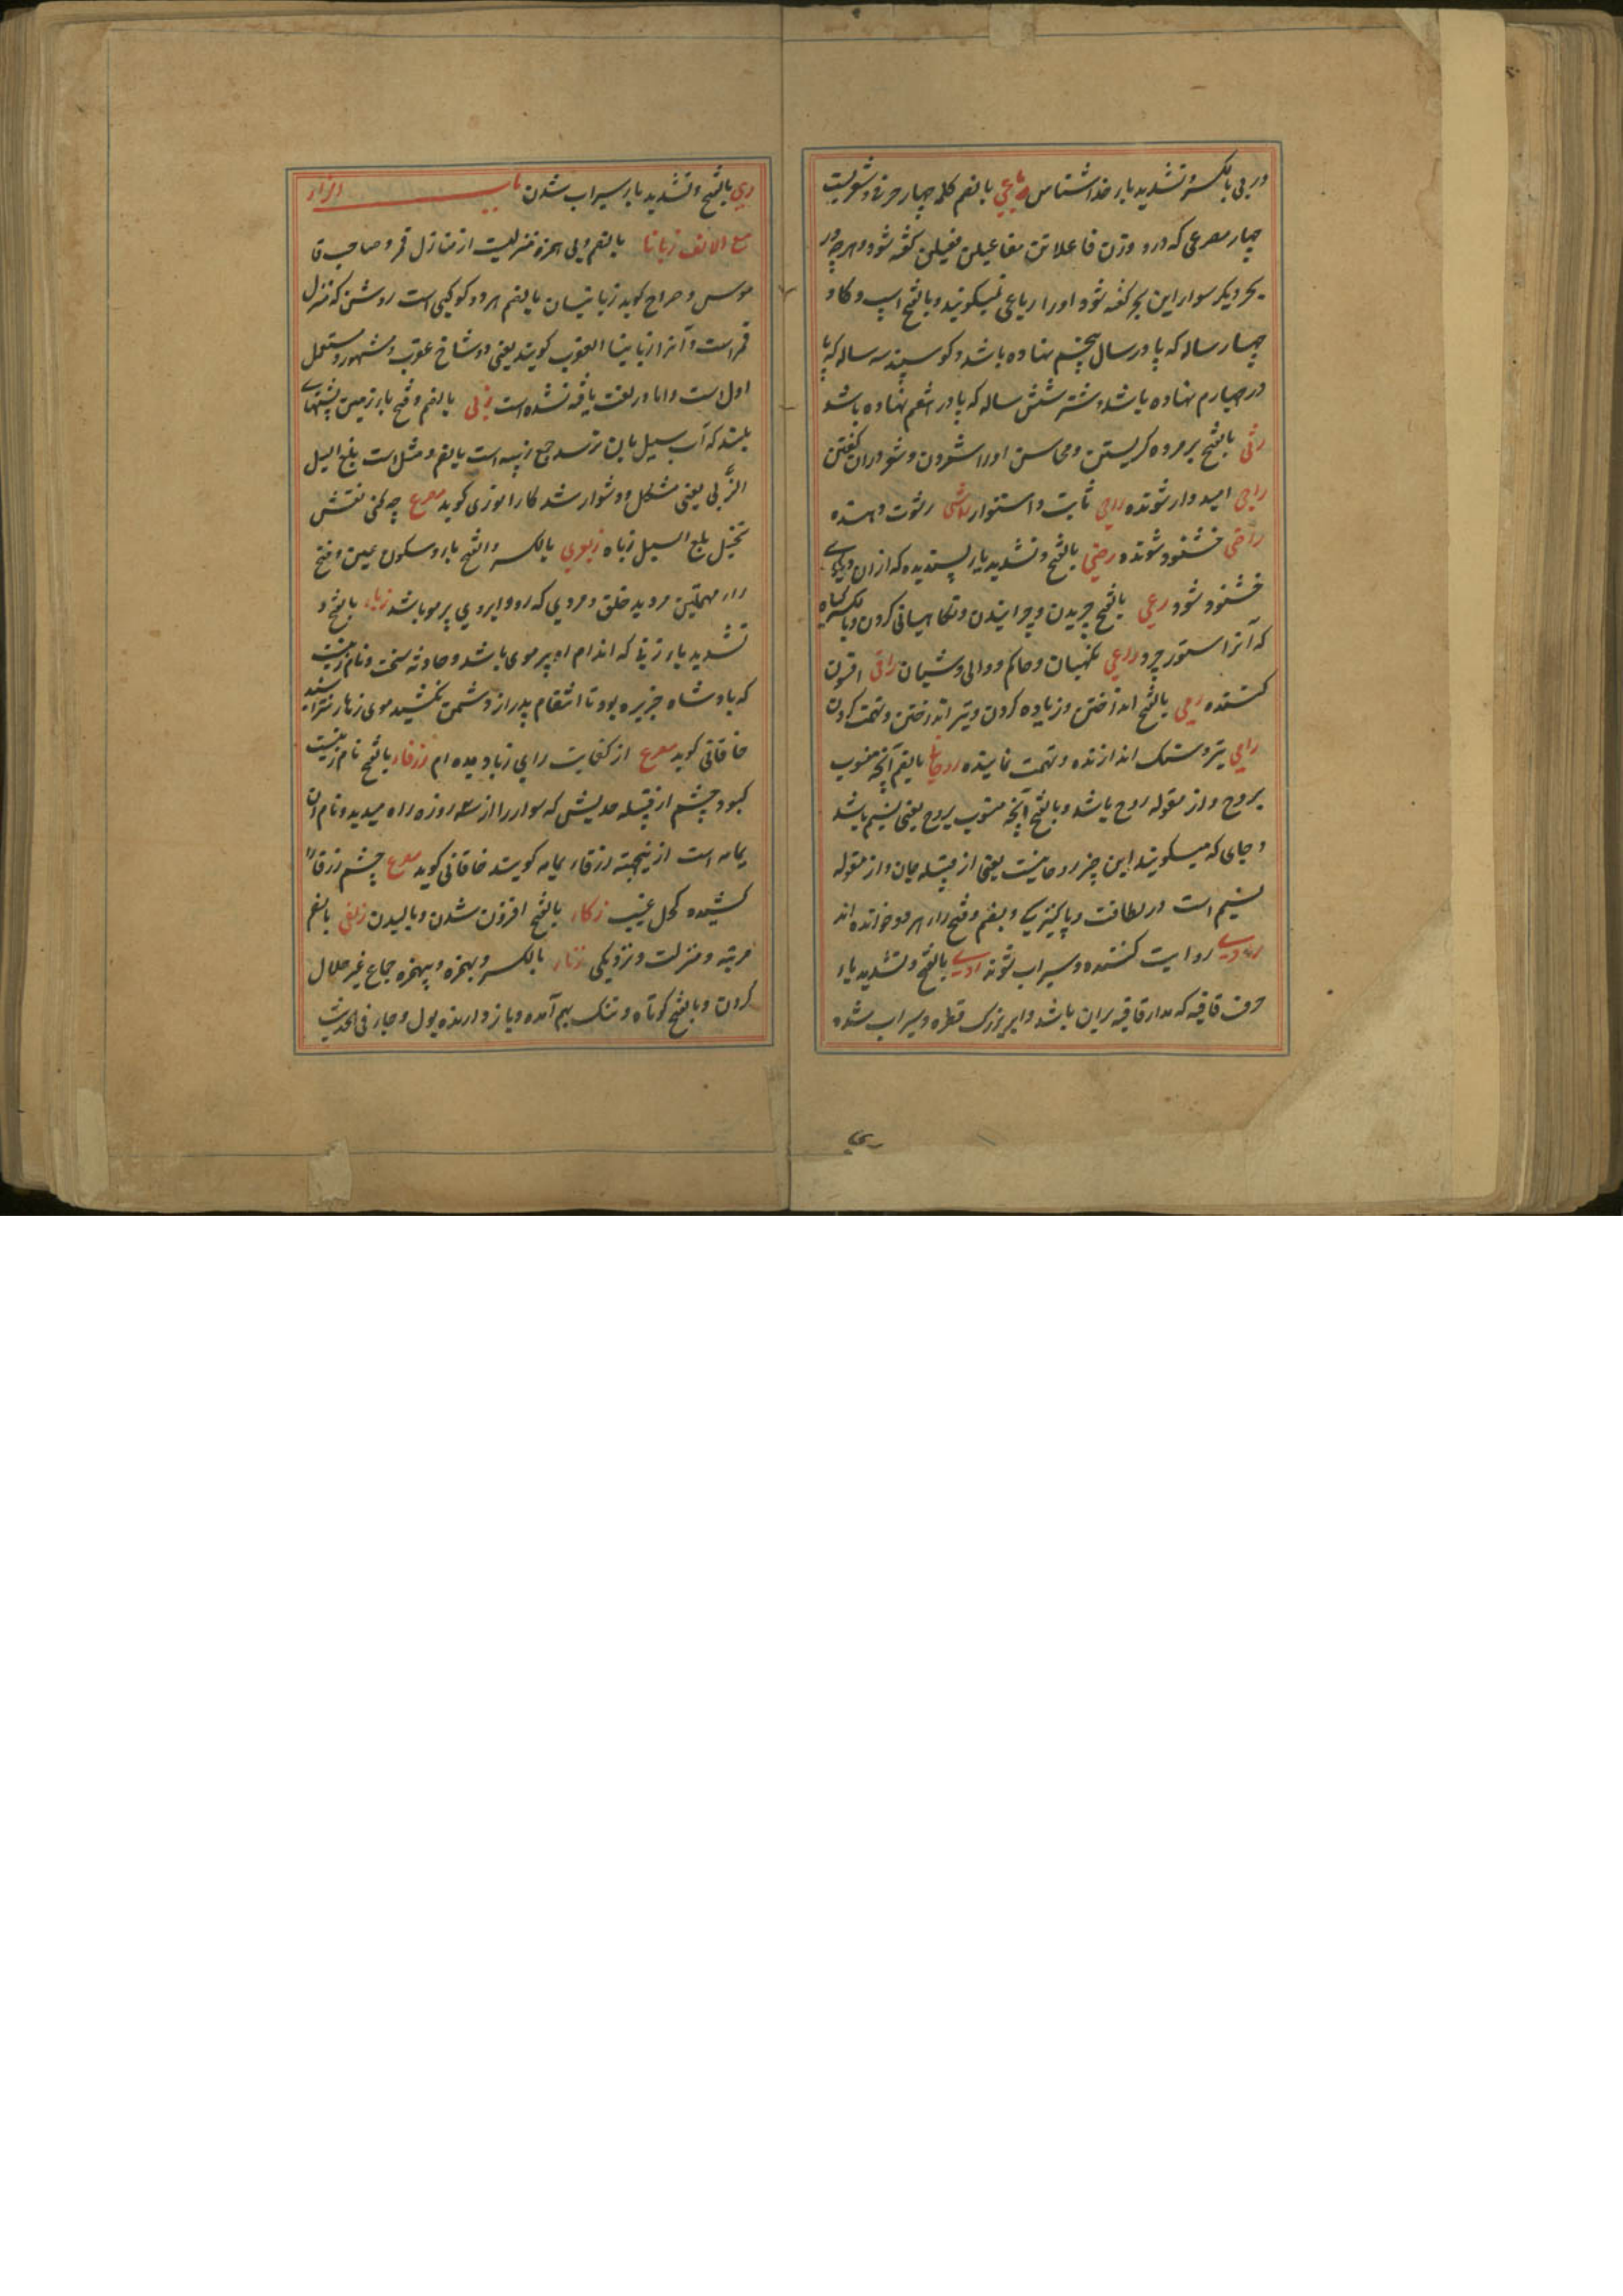 و ربی بالکسر و تشدید یار خداشناس رباعی بالضم کلمه چهار حرفی و شعریست
چهار مصرعی که در و وزن فاعلاتن مفاعیلن فعیلن گفته شود و هرچه در
بحر دیگر سوار این بحر گفته شود او را رباعی نمیگویند و بالفتح اسپ و گاو
چهار ساله که پا در سال پنجم نهاده باشد و گوسپند سه ساله که پا
در چهارم نهاده باشد و شتر شش ساله که پا در هفتم نهاده باشد
رثی بالفتح بر مرده گریستن و محاسن او را شمردن و شعر در ان گفتن
راجی امیدوار شونده راسی ثابت و استوار راشی رشوت دهنده
راضی خشنود شونده رضی بالفتح و تشدید یار پسندیده که از ان دیگری
خشنود شود رعی بالفتح چریدن و چرانیدن و نگاهبانی کردن و بالکسر گیاه
که آنرا ستور چرد راعی نگهبان و حاکم و والی و شبان راقی افسون
کننده رمی بالفتح انداختن و زیاده کردن و تیر انداختن و تهمت کردن
رامی تیر و سنگ اندازنده و تهمت نماینده روحانی بالضم آنچه منسوب
بروح و از مقوله روح باشد و بالفتح آنچه منسوب بروح یعنی نسیم باشد
و جای که میگویند این چیز روحانیست یعنی از قبیله جان و از مقوله
نسیم است در لطافت و پاکیزگی و بضم و فتح را هر دو خوانده اند
راوی روایت کننده و سیراب شونده روی بالفتح و تشدید یاء
حرف قافیه که مدار قافیه بران باشد و ابر بزرگ قطره و سیراب شده
ری
ری بالفتح و تشدید یا سیراب شدن باب الزاء
مع الالف زبانا بالضم و بی همزه منزلیست از منازل قمر و صاحب قا
موس و صراح گوید زبانیان بالضم هر دو کوکبی است روشن که منزل
قمر است و آنرا زبانیا العقرب گویند یعنی دو شاخ عقرب و مشهور و مستعمل
اول است و اما در لغت یافته نشده است زبی بالضم و فتح با زمین پشتهای
بلند که آب سیل بان نرسد جمع زبیه است بالضم و مثل است بلغ السیل
الزُّبی یعنی مشکل و دشوار شد کار انوری گوید مصرع چه کنی نقش
تخیل بلغ السیل زباه زبعری بالکسر و الفتح با و سکون عین و فتح
را مهملتین مرد بد خلق و مردی که رو و ابروی پر مو باشد زباء بالفتح و
تشدید باء زنی که اندام او پر موی باشد و حادثه سخت و نام زنیست
که پادشاه جزیره بود تا انتقام پدر از دشمن نکشید موی زهار نتراشید
خاقانی گوید مصرع از کفایت رای زبا دیده ام زرقاء بالفتح نام زنیست
کبود چشم از قبیله جدیس که سوار را از سه روزه راه میدید و نام ان
یمامه است ازینجهت زرقاء یمامه گویند خاقانی گوید مصرع چشم زرقا
کشیده کحل غیب زکاء بالفتح افزون شدن و بالیدن زلفی بالضم
مرتبه و منزلت و نزدیکی زناء بالکسر و بهمزه و بیهمزه جماع غیر حلال
کردن و بالفتح کوتاه و تنک بهم آمده و باز دارنده بول و جاء فی الحدیث